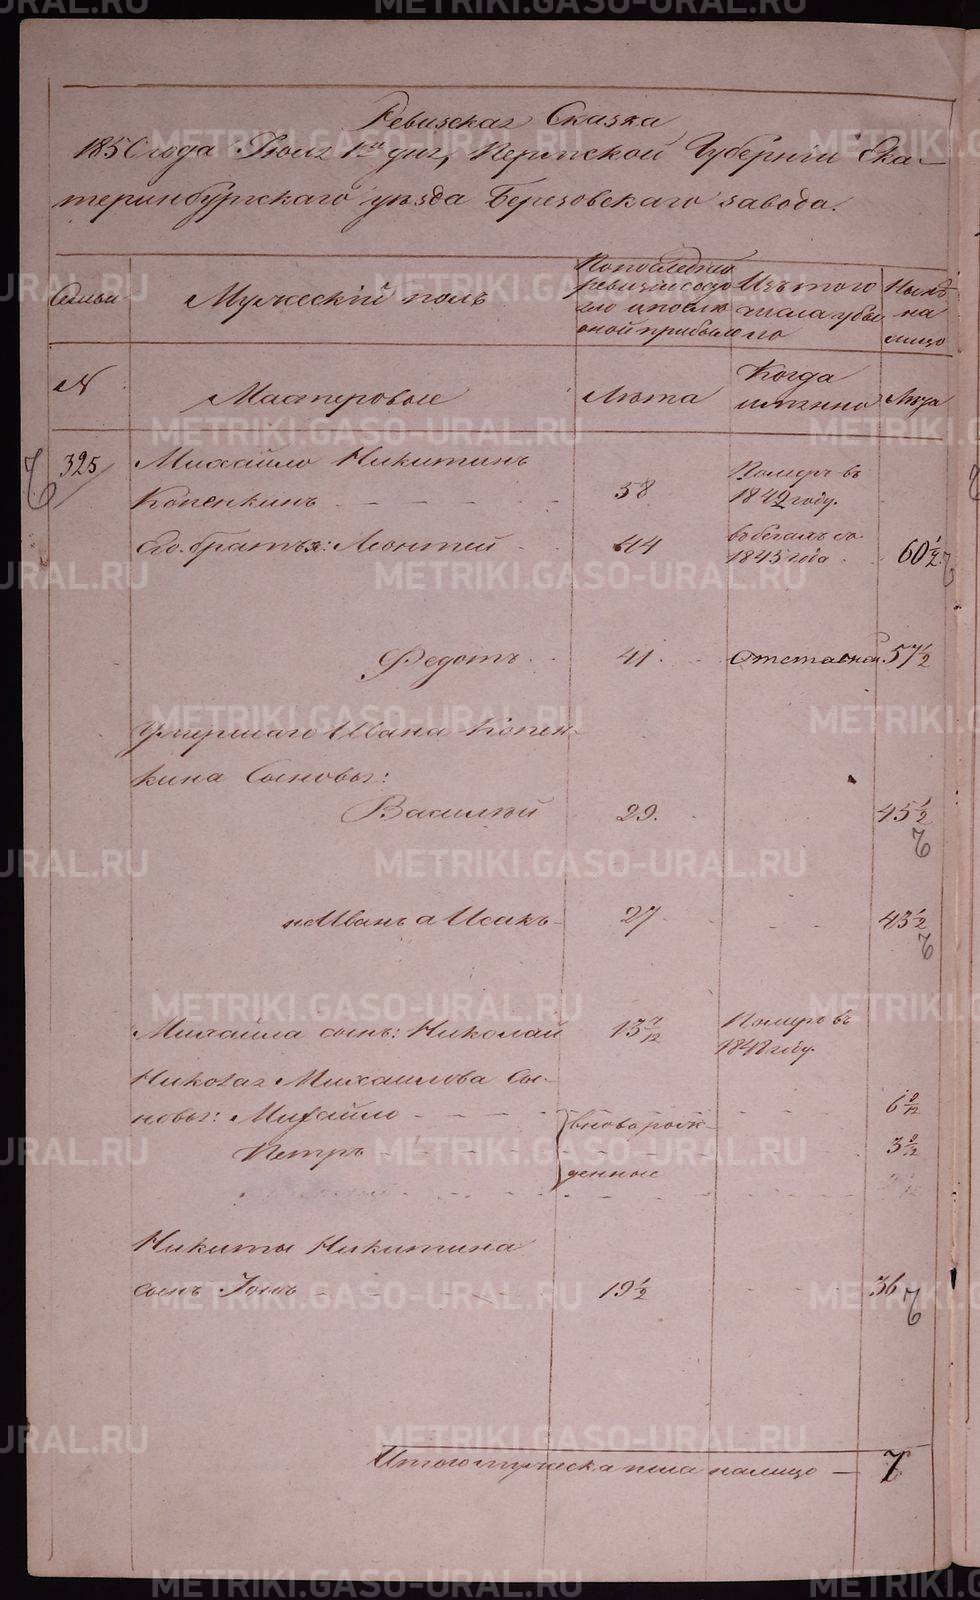 Ревизская Сказка
1850 года Июля 1го дня, Пермской Губернии Ека-
теринбургскаго уезда Березовскаго завода.
Семьи
Мужескій полъ
По последней
ревизіи состо
яло и после
оной прибыло
Изъ того
числа убы
ло
Ныне
на
лицо
N
Мастеровые
Лѣта
Когда
именно
Лѣта
325
Михайло Никитинъ
Копенкинъ
58
Померъ въ
1849 году.
Его братья: Леонтей
44
въ бегахъ съ
1845 года
60 1/2
Федотъ
41
Отставной
57 1/2
Умершаго Ивана Копен-
кина Сыновья:
Василей
29
45 1/2
не Иванъ а Исакъ
27
43 1/2
Михайла сынъ: Николай
13 7/12
Померъ въ
1848 году.
Николая Михайлова Сы-
новья: Михайло
вновь рож-
6 9/12
Петръ
денные
3 9/12
Никиты Никитина
сынъ Іонъ
19 1/2
36
Итого мужеска пола налицо
7
METRIKI.GASO-URAL.RU